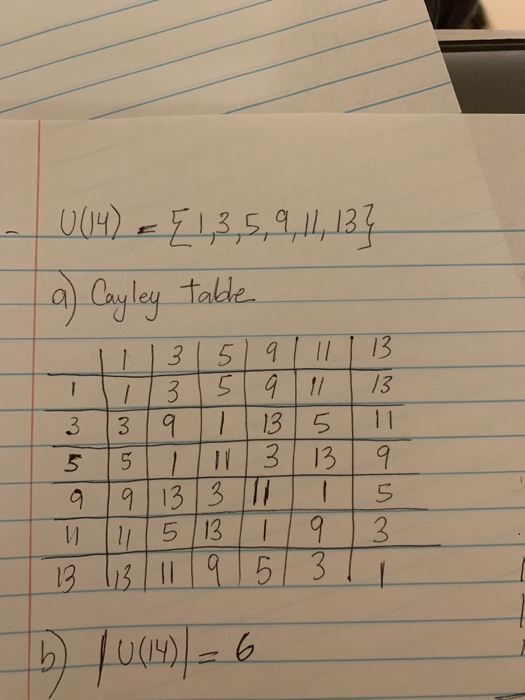 - U(14) = {1,3,5,9,11,13}
a) Cayley table
1 3 5 9 11 13
1 1 3 5 9 11 13
3 3 9 1 13 5 11
5 5 1 11 3 13 9
9 9 13 3 11 1 5
11 11 5 13 1 9 3
13 13 11 9 5 3 1
b) |U(14)| = 6